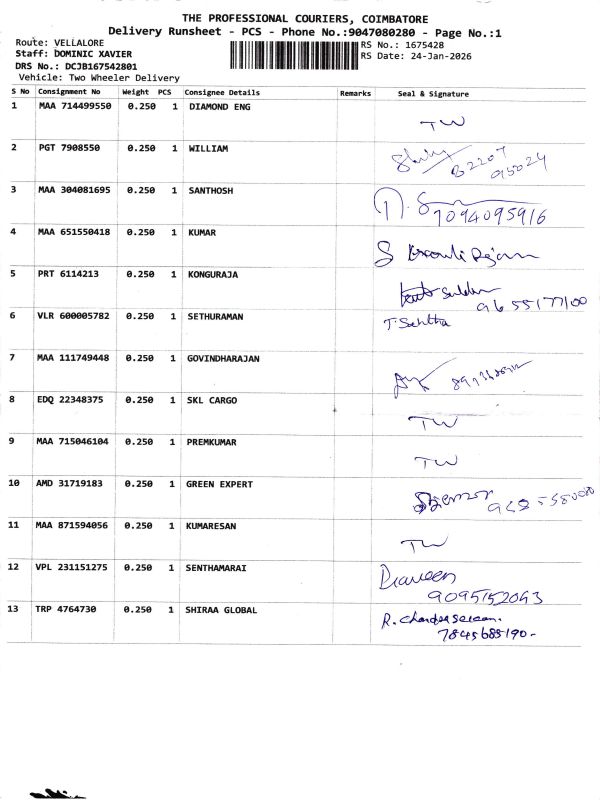 THE PROFESSIONAL COURIERS, COIMBATORE
Delivery Runsheet - PCS - Phone No.:9047080280 - Page No.:1
Route: VELLALORE
RS No.: 1675428
Staff: DOMINIC XAVIER
RS Date: 24-Jan-2026
DRS No.: DCJB167542801
Vehicle: Two Wheeler Delivery
S No Consignment No Weight PCS Consignee Details Remarks Seal & Signature
1 MAA 714499550 0.250 1 DIAMOND ENG TW
2 PGT 7908550 0.250 1 WILLIAM
3 MAA 304081695 0.250 1 SANTHOSH 7094095916
4 MAA 651550418 0.250 1 KUMAR
5 PRT 6114213 0.250 1 KONGURAJA 9655177100
6 VLR 600005782 0.250 1 SETHURAMAN
7 MAA 111749448 0.250 1 GOVINDHARAJAN
8 EDQ 22348375 0.250 1 SKL CARGO TW
9 MAA 715046104 0.250 1 PREMKUMAR TW
10 AMD 31719183 0.250 1 GREEN EXPERT
11 MAA 871594056 0.250 1 KUMARESAN TW
12 VPL 231151275 0.250 1 SENTHAMARAI
9095152043
13 TRP 4764730 0.250 1 SHIRAA GLOBAL
7845685190-